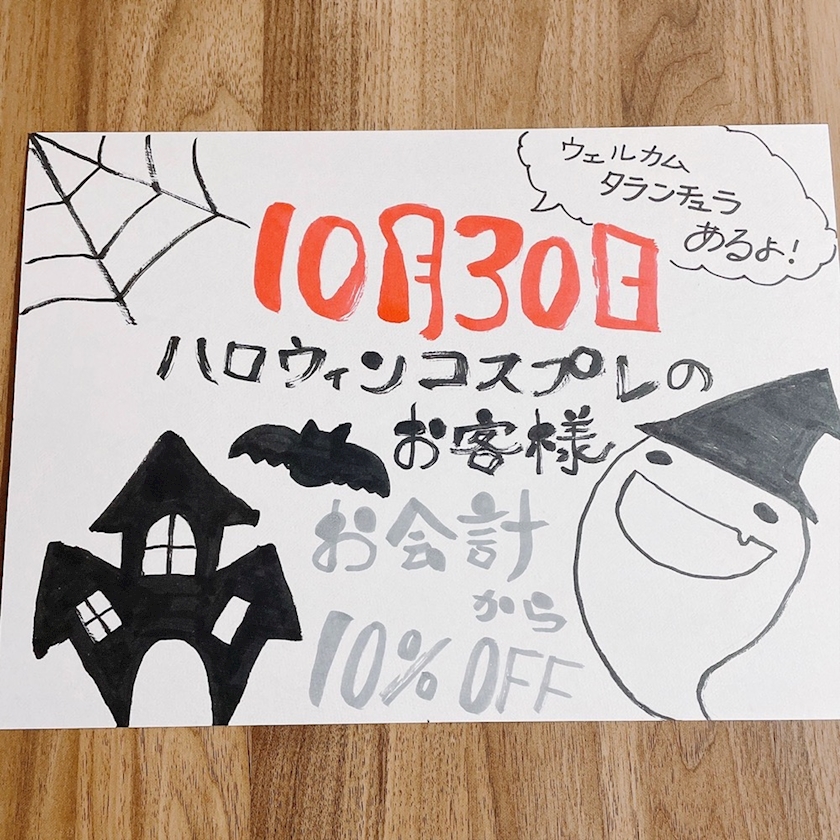 ウェルカム
タランチュラ
あるよ!
10月30日
ハロウィンコスプレの
お客様
お会計
から
10% OFF